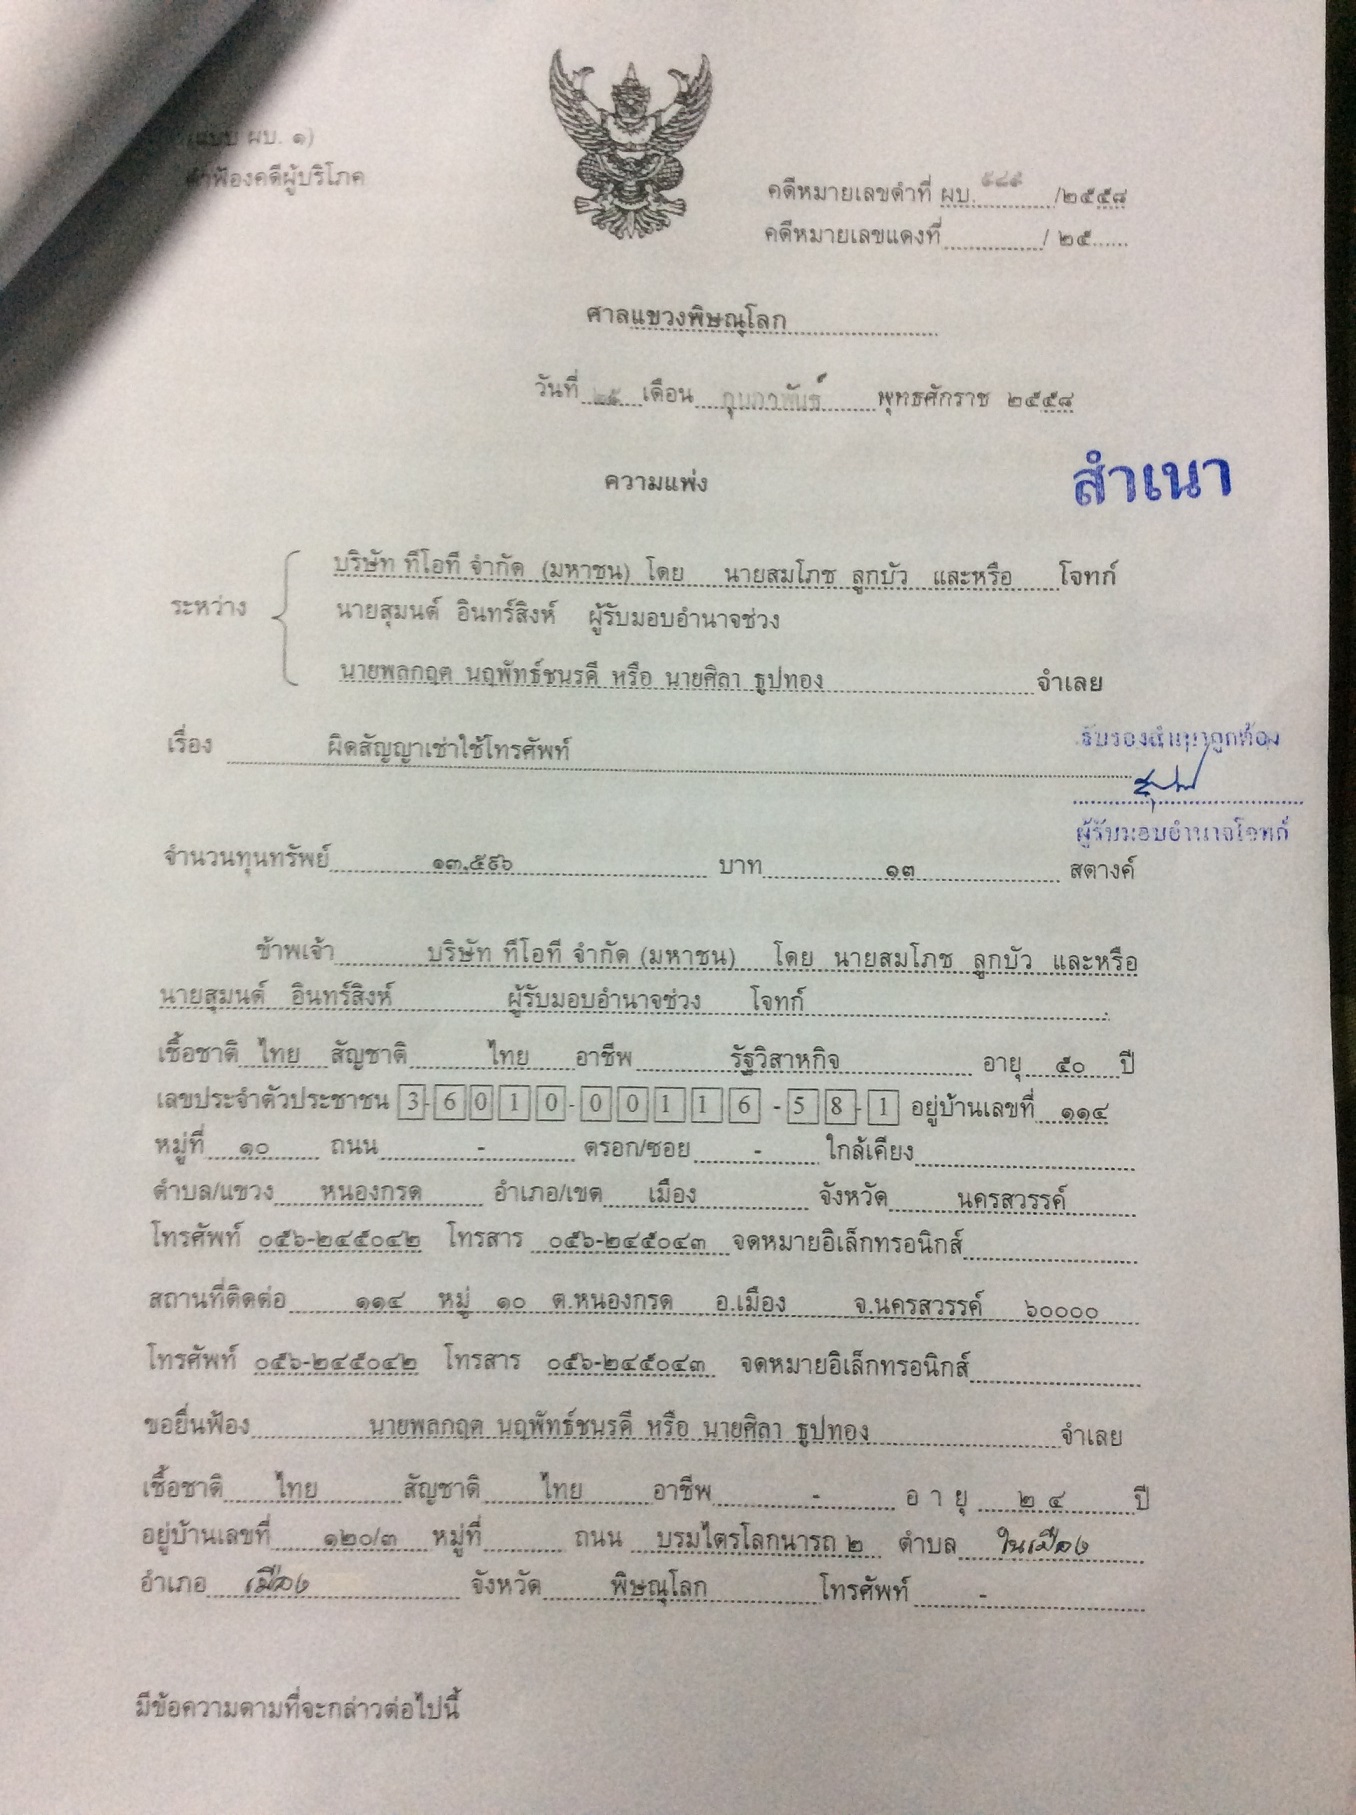 (แบบ ผบ. ๑)
คำฟ้องคดีผู้บริโภค
คดีหมายเลขดำที่ ผบ. ๕๘๙ /๒๕๕๘
คดีหมายเลขแดงที่............/ ๒๕......
ศาลแขวงพิษณุโลก
วันที่ ๒๕ เดือน กุมภาพันธ์ พุทธศักราช ๒๕๕๘
ความแพ่ง
สำเนา
บริษัท ทีโอที จำกัด (มหาชน) โดย นายสมโภช ลูกบัว และหรือ โจทก์
ระหว่าง
นายสุมนต์ อินทร์สิงห์ ผู้รับมอบอำนาจช่วง
นายพลกฤต นฤพัทธ์ชนรดี หรือ นายศิลา ธูปทอง จำเลย
เรื่อง ผิดสัญญาเช่าใช้โทรศัพท์
รับรองสำเนาถูกต้อง
ผู้รับมอบอำนาจโจทก์
จำนวนทุนทรัพย์ ๑๓,๕๙๖ บาท ๑๓ สตางค์
ข้าพเจ้า บริษัท ทีโอที จำกัด (มหาชน) โดย นายสมโภช ลูกบัว และหรือ
นายสุมนต์ อินทร์สิงห์ ผู้รับมอบอำนาจช่วง โจทก์
เชื้อชาติ ไทย สัญชาติ ไทย อาชีพ รัฐวิสาหกิจ อายุ ๕๐ ปี
เลขประจำตัวประชาชน 3-6010-00116-58-1 อยู่บ้านเลขที่ ๑๑๔
หมู่ที่ ๑๐ ถนน - ตรอก/ซอย - ใกล้เคียง
ตำบล/แขวง หนองกรด อำเภอ/เขต เมือง จังหวัด นครสวรรค์
โทรศัพท์ ๐๕๖-๒๔๕๐๔๒ โทรสาร ๐๕๖-๒๔๕๐๔๓ จดหมายอิเล็กทรอนิกส์
สถานที่ติดต่อ ๑๑๔ หมู่ ๑๐ ต.หนองกรด อ.เมือง จ.นครสวรรค์ ๖๐๐๐๐
โทรศัพท์ ๐๕๖-๒๔๕๐๔๒ โทรสาร ๐๕๖-๒๔๕๐๔๓ จดหมายอิเล็กทรอนิกส์
ขอยื่นฟ้อง นายพลกฤต นฤพัทธ์ชนรดี หรือ นายศิลา ธูปทอง จำเลย
เชื้อชาติ ไทย สัญชาติ ไทย อาชีพ - อายุ ๒๔ ปี
อยู่บ้านเลขที่ ๑๒๐/๓ หมู่ที่ ถนน บรมไตรโลกนารถ ๒ ตำบล ในเมือง
อำเภอ เมือง จังหวัด พิษณุโลก โทรศัพท์ -
มีข้อความตามที่จะกล่าวต่อไปนี้